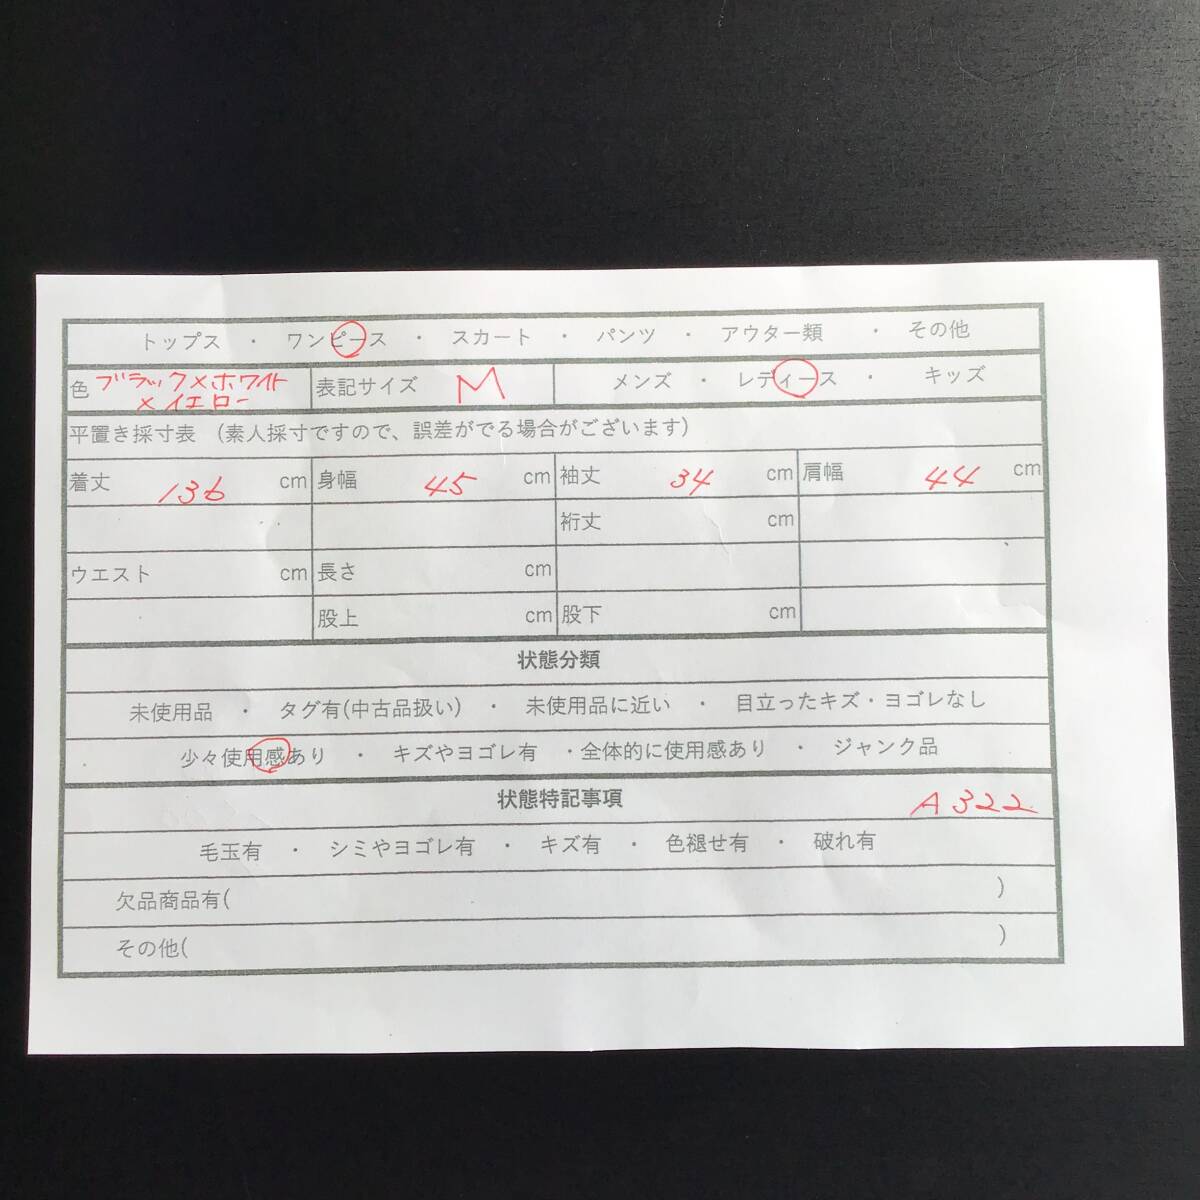 トップス ・ ワンピース ・ スカート ・ パンツ ・ アウター類 ・ その他
色 ブラック×ホワイト 表記サイズ M メンズ ・ レディース ・ キッズ
×イエロー
平置き採寸表 (素人採寸ですので、誤差がでる場合がございます)
着丈 136 cm 身幅 45 cm 袖丈 34 cm 肩幅 44 cm
裄丈 cm
ウエスト cm 長さ cm
股上 cm 股下 cm
状態分類
未使用品 ・ タグ有(中古品扱い) ・ 未使用品に近い ・ 目立ったキズ・ヨゴレなし
少々使用感あり ・ キズやヨゴレ有 ・全体的に使用感あり ・ ジャンク品
状態特記事項 A322
毛玉有 ・ シミやヨゴレ有 ・ キズ有 ・ 色褪せ有 ・ 破れ有
欠品商品有( )
その他( )